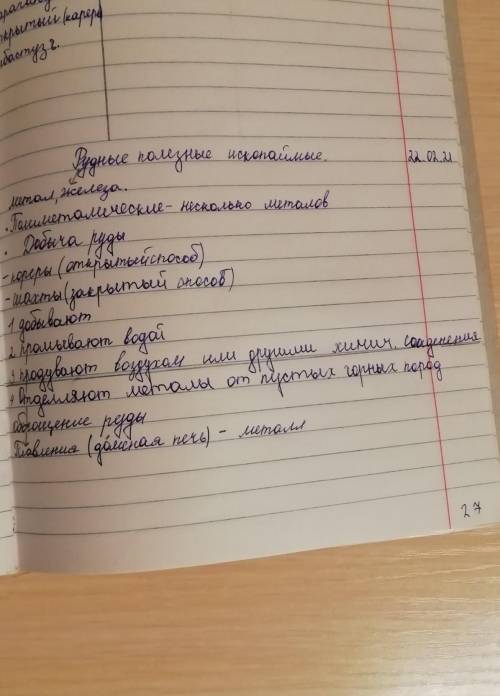 крытый (карер
ибастуз г.
Рудные полезные ископаймые. 22.02.21
метал, железа.
• Полиметалические - несколько металов
• Добыча руды
- карьеры (открытый способ)
- шахты (закрытый способ)
1 добывают
2 промывают водой
3 продувают воздухом или другими химич. соединения
4 Отделляют металы от пустых горных пород
Обогощение руды
Плавления (доменая печь) - металл
27